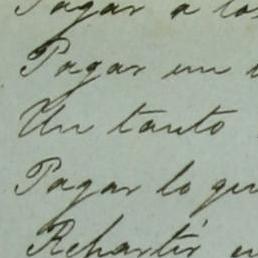 Pagar a los
Pagar un
Un tanto
Pagar lo que
Repartir